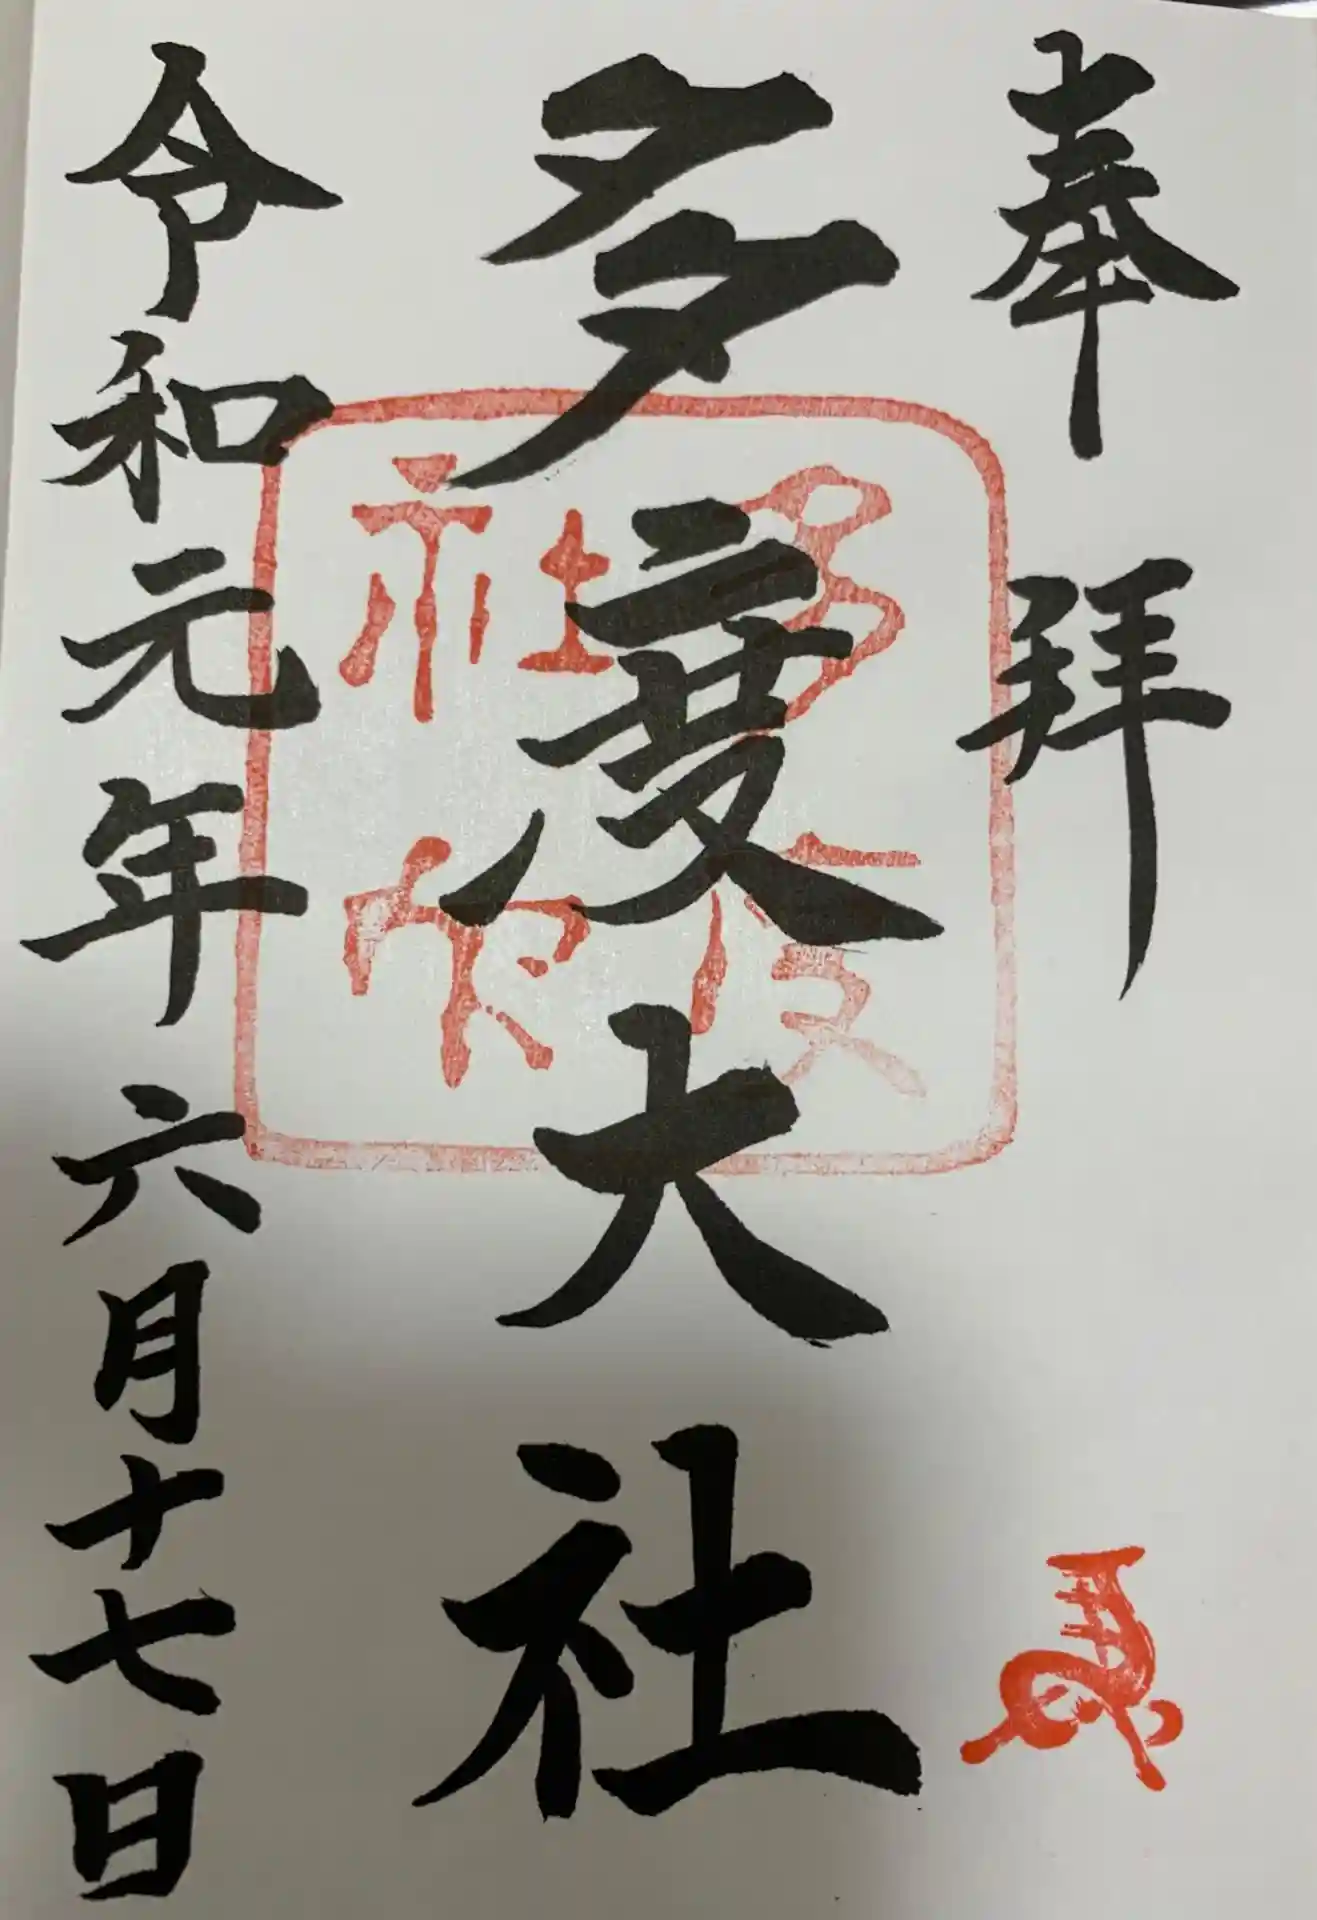 奉拝
多度大社
令和元年六月十七日
多度
社印